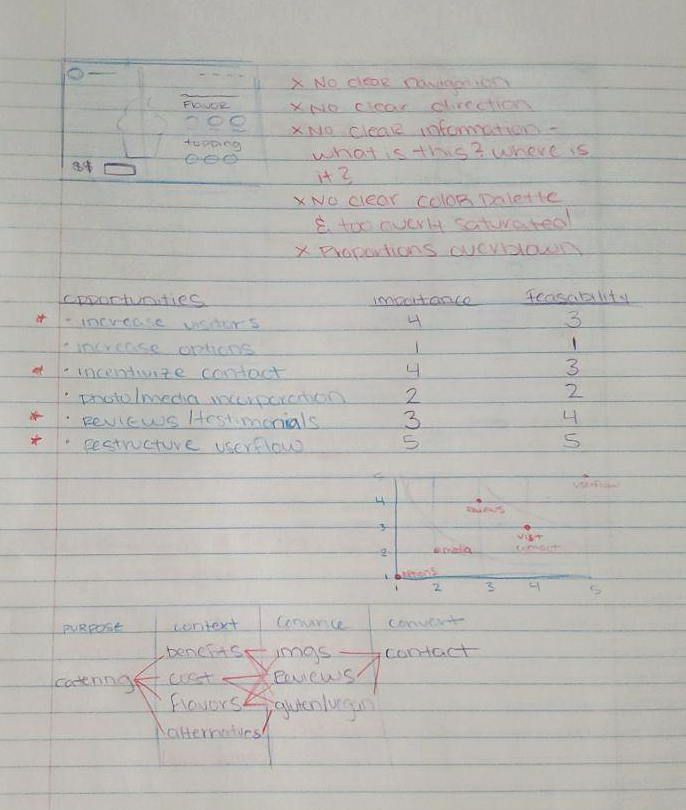 Flavor
topping
$$
x No clear navigation
x No clear direction
x No clear information -
what is this? where is
it?
x No clear color palette
& too overly saturated!
x Proportions overblown
opportunities importance feasability
* · increase visitors 4 3
· increase options 1 1
* · incentivize contact 4 3
· photo/media incorporation 2 2
* · reviews/testimonials 3 4
* · restructure userflow 5 5
5 userflow
4 reviews
3 visit
contact
2 media
1 options
1 2 3 4 5
PURPOSE context convince convert
benefits imgs contact
catering cost reviews
flavors gluten/vegan
alternatives